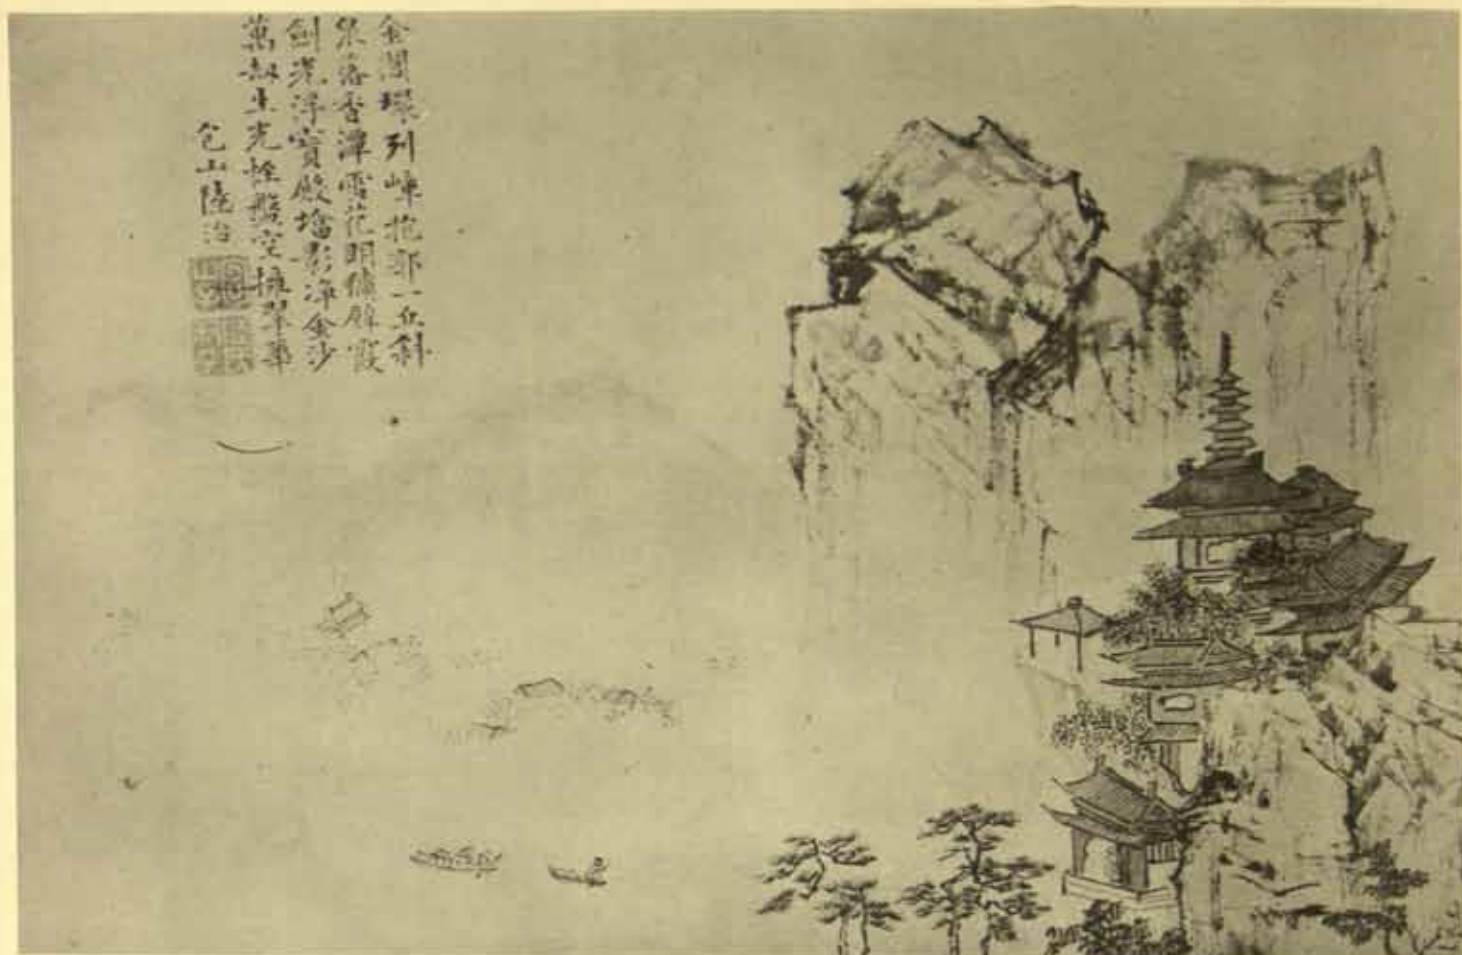 金閶環列嶂抱郡一丘斜
泉落香潭雪花明繡壁霞
劍光浮寶殿墖影淨金沙
萬劫生光怪盤空擁翠華
包山陸治